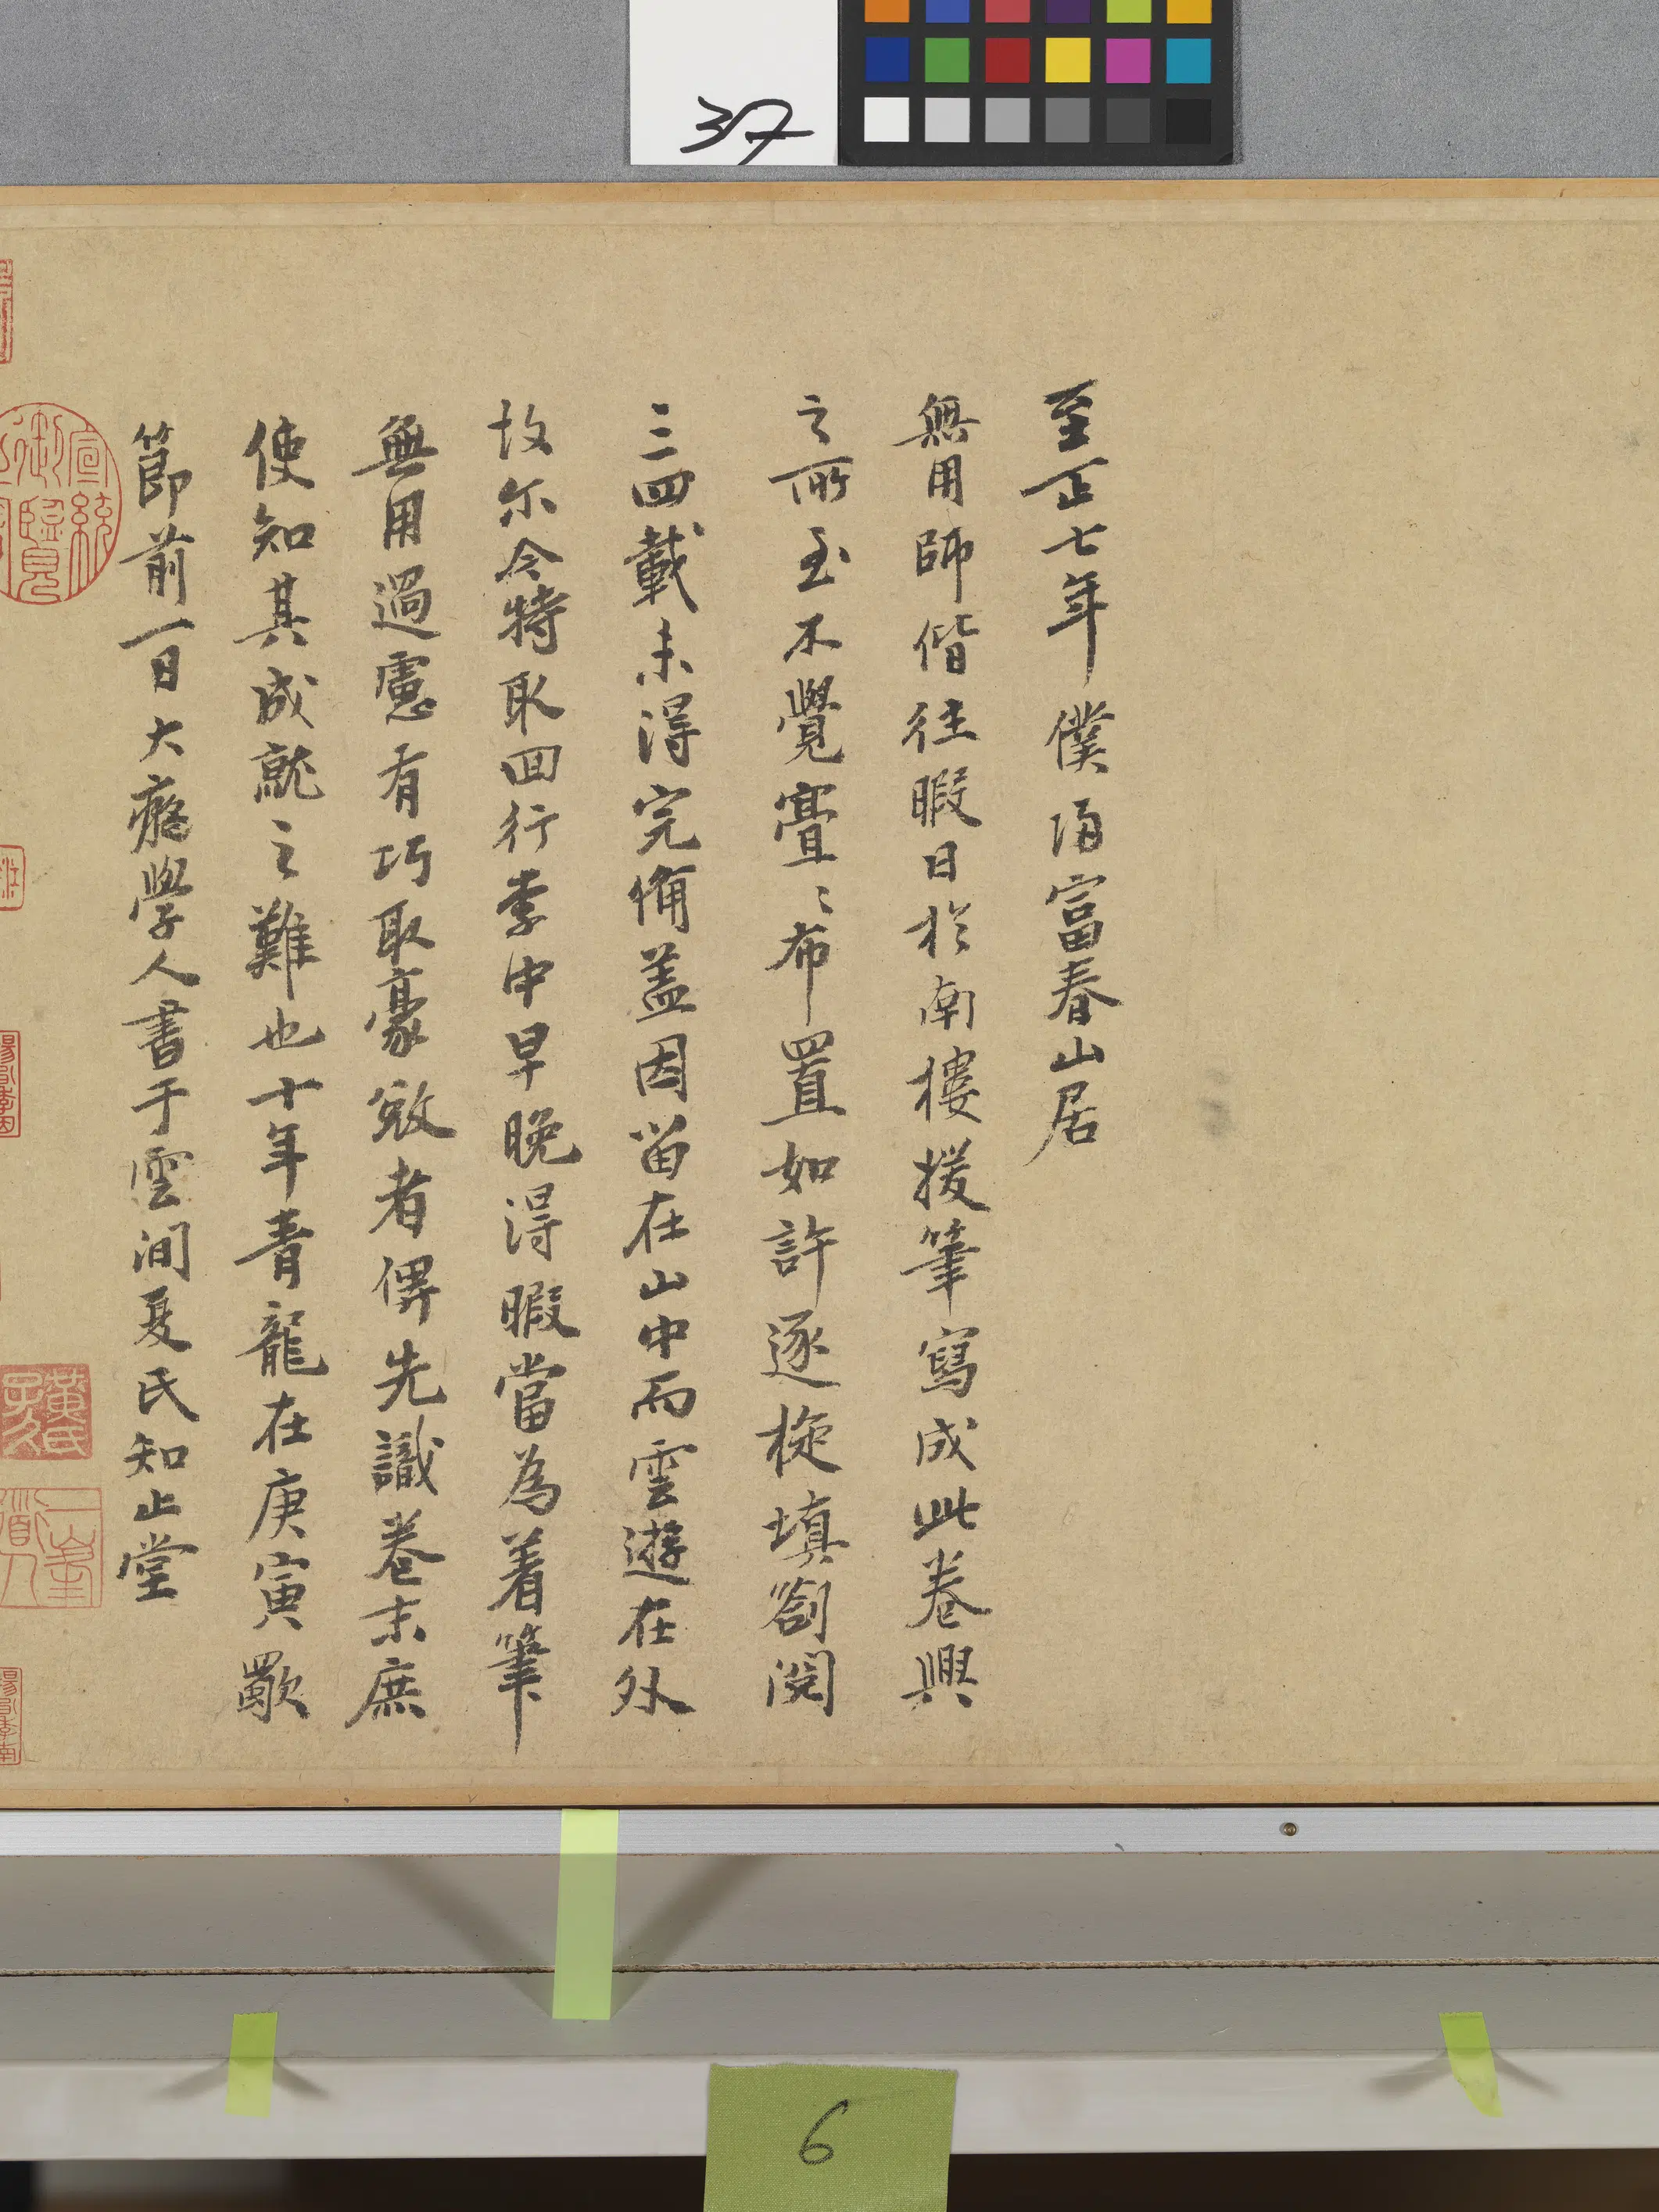 37
至正七年僕歸富春山居
無用師偕往暇日於南樓援筆寫成此卷興
之所至不覺亹〻布置如許逐旋填劄閱
三四載未得完備盖因留在山中而雲遊在外
故尔今特取回行李中早晚得暇當為着筆
無用過慮有巧取豪敚者俾先識卷末庶
使知其成就之難也十年青龍在庚寅歜
節前一日大癡學人書于雲間夏氏知止堂
宣統御覽
黃氏子久
一峯道人
6